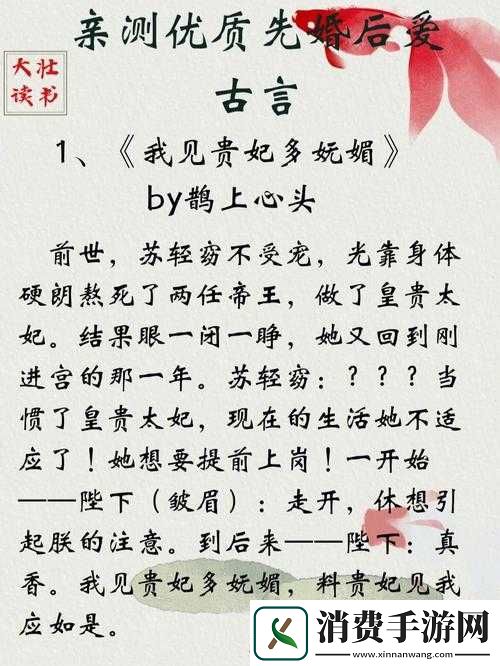 亲测优质先婚后爱
大壮
读书
古言
1、《我见贵妃多妩媚》
by鹊上心头
前世，苏轻窈不受宠，光靠身体
硬朗熬死了两任帝王，做了皇贵太
妃。结果眼一闭一睁，她又回到刚
进宫的那一年。苏轻窈：？？？当
惯了皇贵太妃，现在的生活她不适
应了！她想要提前上岗！一开始
——陛下（皱眉）：走开，休想引
起朕的注意。到后来——陛下：真
香。我见贵妃多妩媚，料贵妃见我
应如是。
消费手游网
www.xinnanwang.com